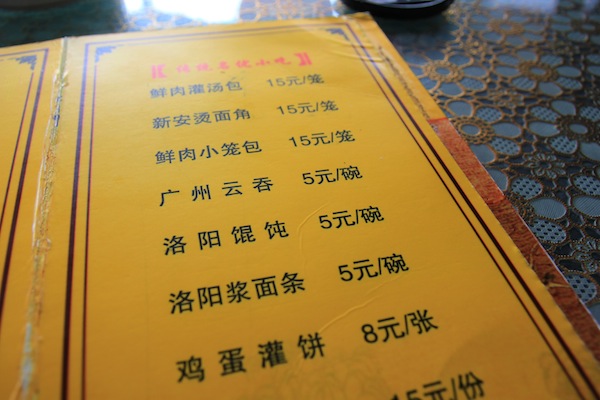 【传统名优小吃】
鲜肉灌汤包 15元/笼
新安烫面角 15元/笼
鲜肉小笼包 15元/笼
广州云吞 5元/碗
洛阳馄饨 5元/碗
洛阳浆面条 5元/碗
鸡蛋灌饼 8元/张
15元/份